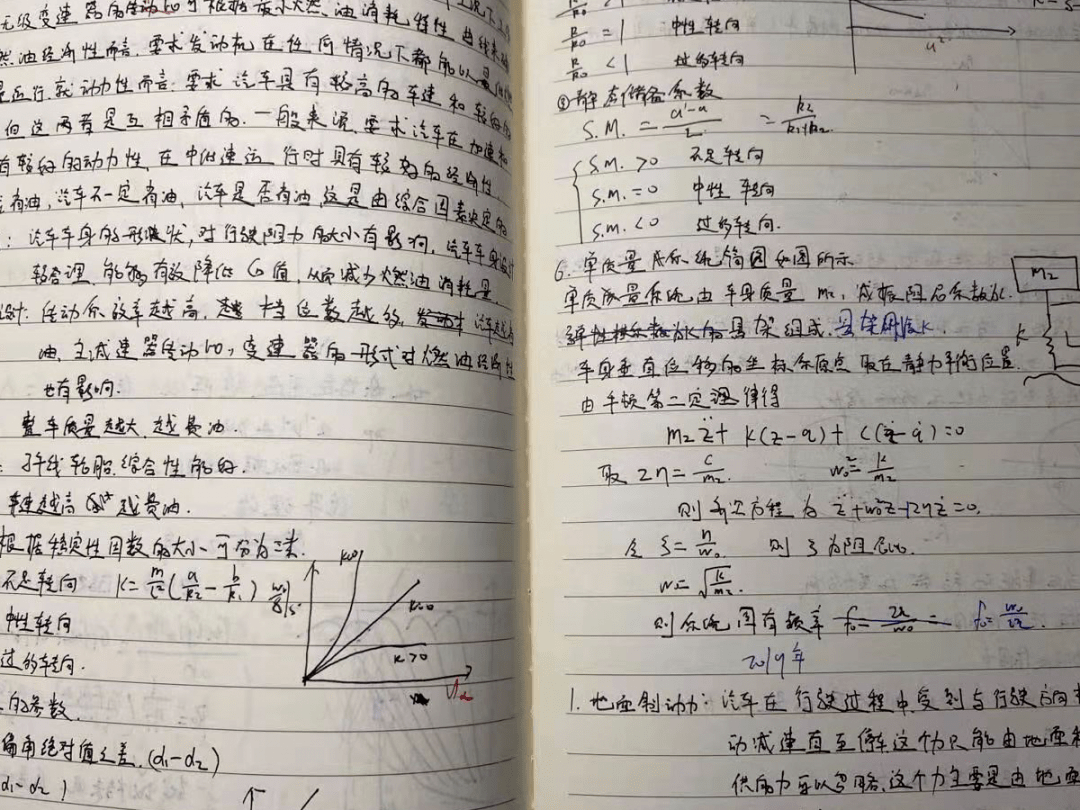 无级变速器的传动比可根据最小燃油消耗特性曲线来
燃油经济性而言,要求发动机在任何情况下都能以最
运行.就动力性而言.要求汽车具有较高的车速和较好的
但这两者是互相矛盾的.一般来说,要求汽车在加速和
有较好的动力性,在中低速运行时具有较好的经济性.
省油,汽车不一定省油,汽车是否省油,这是由综合因素决定的
:汽车车身的形状,对行驶阻力的大小有影响,汽车车身设计
较合理,能够有效降低CD值,从而减少燃油消耗量.
设计:传动系效率越高,挡位数越多,汽车越
油,主减速器传动比,变速器的形式对燃油经济性
也有影响.
整车质量越大,越费油.
:子午线轮胎综合性能好.
车速越高 越费油.
根据稳定性因数的大小可分为三类.
不足转向 K=m/L²(a/k₂-b/k₁)
K<0
K=0
K>0
中性转向
过多转向.
ua
的参数.
偏角绝对值之差.(α₁-α₂)
α₁-α₂)
R/R₀=1 中性转向
R/R₀<1 过多转向
③静态储备系数
S.M.=a'-a/L =k₂/k₁+k₂
S.M.>0 不足转向
S.M.=0 中性转向
S.M.<0 过多转向.
6.单质量系统简图如图所示
单质量系统由车身质量m₂,减振器阻尼系数为c.
的悬架组成.悬架刚度K
车身垂直位移的坐标原点取在静力平衡位置.
由牛顿第二定律得
m₂z̈+K(z-q)+C(ż-q̇)=0
取2n=c/m₂ ω₀²=k/m₂
则齐次方程为z̈+ω₀²z+2nż=0.
令ζ=n/ω₀ 则ζ为阻尼比.
ω=√k/m₂.
则系统固有频率 f₀=ω₀/2π.
m₂
K
2019年
1.地面制动力:汽车在行驶过程中受到与行驶方向
动减速直至停车这个力只能由地面和
供的力可以忽略,这个力主要是由地面